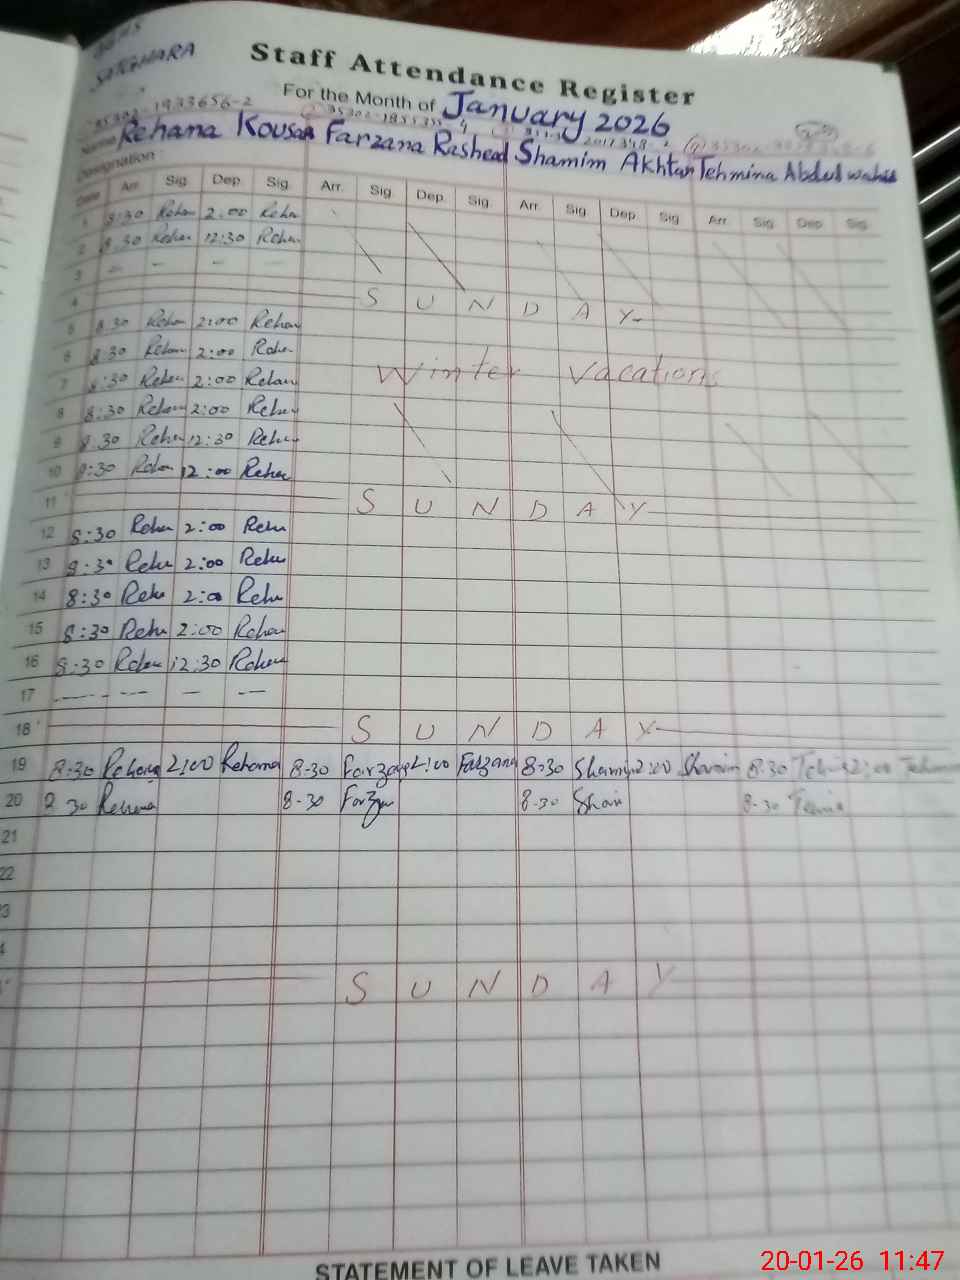 SATGHARA
Staff Attendance Register
For the Month of January 2026
35302-1933656-2
Name Rehana Kousar Farzana Rasheed Shamim Akhtar Tehmina Abdul wahid
Designation :
Date Arr. Sig. Dep. Sig. Arr. Sig. Dep. Sig. Arr. Sig. Dep. Sig. Arr. Sig. Dep. Sig.
1 8:30 Rehan 2:00 Reha
2 8:30 Rehan 12:30 Rehan
3 — — — —
4 S U N D A Y
5 8:30 Rehan 2:00 Rehan
6 8:30 Rehan 2:00 Rehan
7 8:30 Rehan 2:00 Rehan
Winter Vacations
8 8:30 Rehan 2:00 Rehan
9 8:30 Rehan 12:30 Rehan
10 8:30 Rehan 12:00 Rehan
11 S U N D A Y
12 8:30 Rehan 2:00 Reha
13 8:30 Reha 2:00 Reha
14 8:30 Reha 2:00 Reha
15 8:30 Reha 2:00 Rehan
16 8:30 Rehan 12:30 Rehan
17 — — — —
18 S U N D A Y
19 8:30 Rehana 2:00 Rehana 8-30 Farzana 2:00 Farzana 8-30 Shamim 2:00 Shamim 8:30 2:00
20 Rehana 8-30 8-30 8-30
21
22
S U N D A Y
STATEMENT OF LEAVE TAKEN
20-01-26 11:47